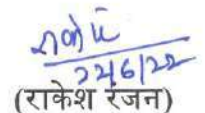 22/6/22
(राकेश रंजन)